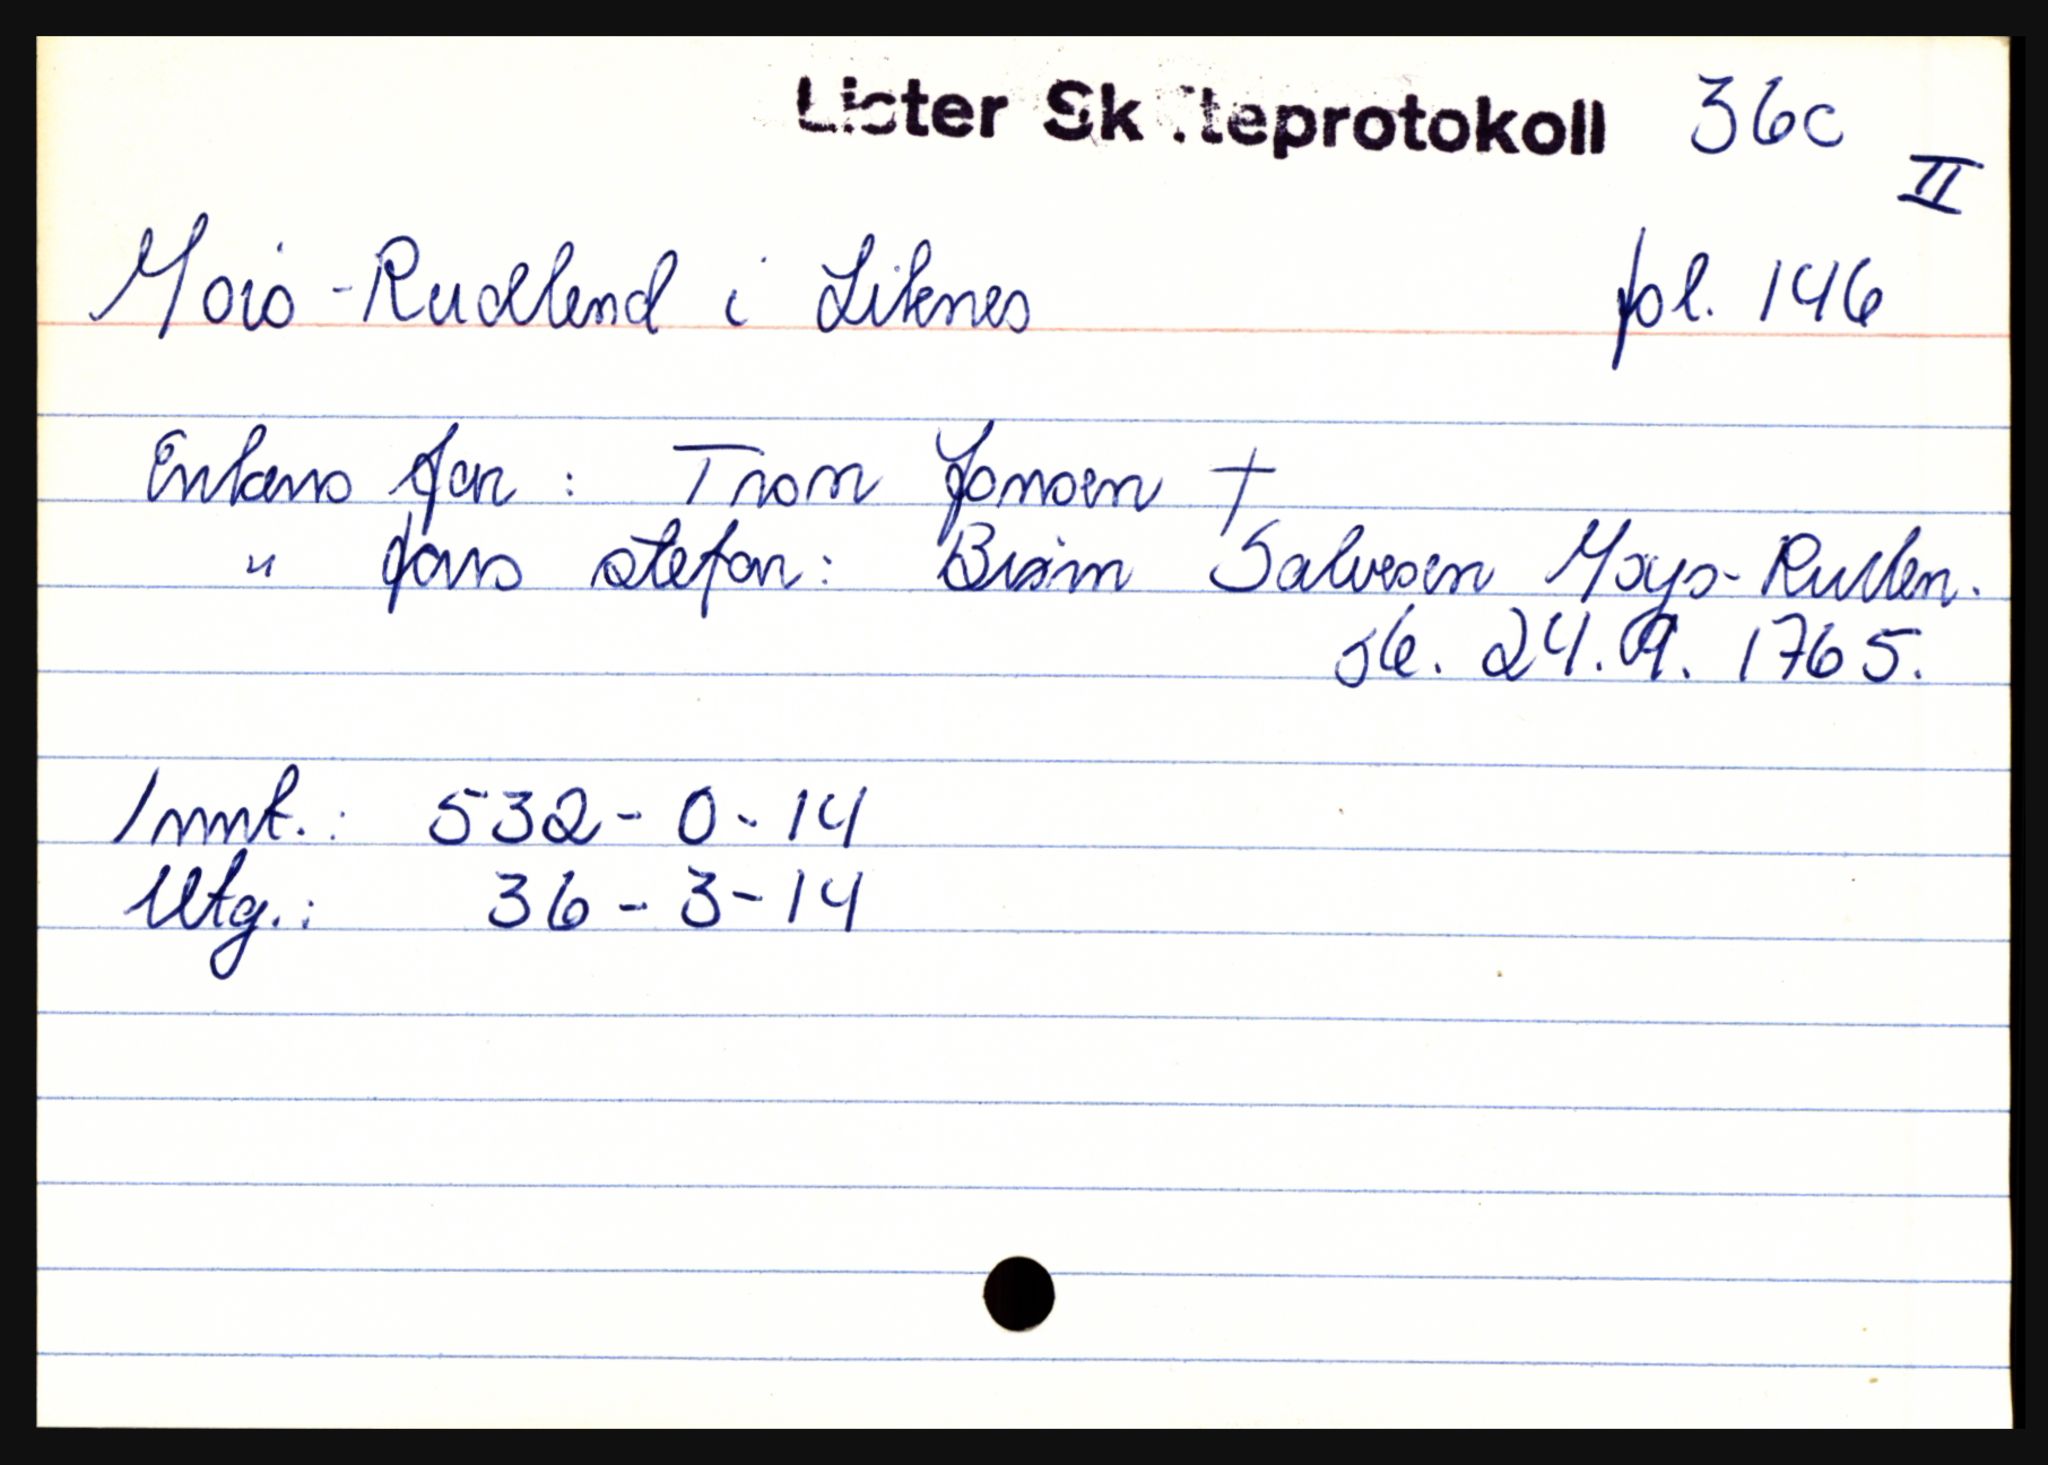 Lister Skifteprotokoll 36c
II
Mois-Rudlend i Liknes fol. 146
Enkens far: Tron Jonsen †
" fars stefar: Biøin Salvesen Moys-Rudlen.
sk. 24.9. 1765.
Innt.: 532-0-14
Utg.: 36-3-14